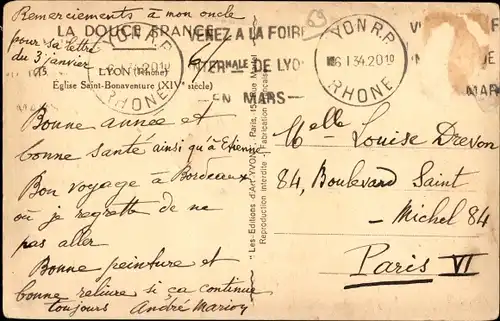 Remerciements à mon oncle
LA DOUCE FRANCE
pour sa lettre
du 3 janvier
LYON (Rhône)
Église Saint-Bonaventure (XIVe siècle)
VENEZ A LA FOIRE
DE LYO
EN MARS
LYON R.P.
6 I 34.20 10
RHONE
MAR
Bonne année et
bonne santé ainsi qu'à Etienne
Bon voyage à Bordeaux
où je regrette de ne
pas aller
Bonne peinture et
bonne reliure si ça continue
toujours André
"Les Editions d'Art YVON", Paris, 15, Rue
Reproduction interdite - Fabrication française
Melle Louise Drevon
84, Boulevard Saint
- Michel 84
Paris VI